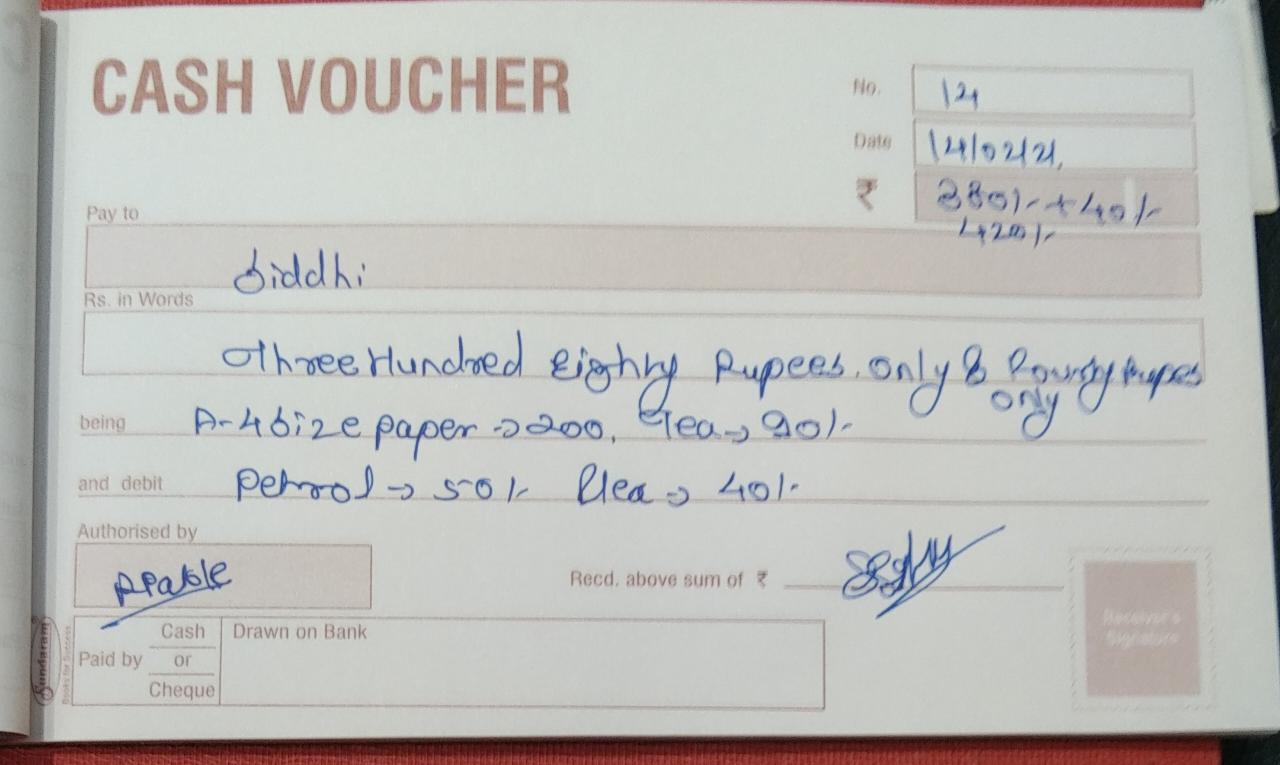 CASH VOUCHER
No. 14
Date 14/02/21,
₹ 380/- + 40/-
420/-
Pay to
Siddhi
Rs. in Words
Three Hundred Eighty Rupees. only & Fourty Rupes
only
being A-4 size paper → 200, Tea → 90/-
and debit Petrol → 50/- Tea → 40/-
Authorised by
Recd. above sum of ₹
Receiver's
Signature
Paid by Cash or Cheque
Drawn on Bank
Sundaram
Books for Success